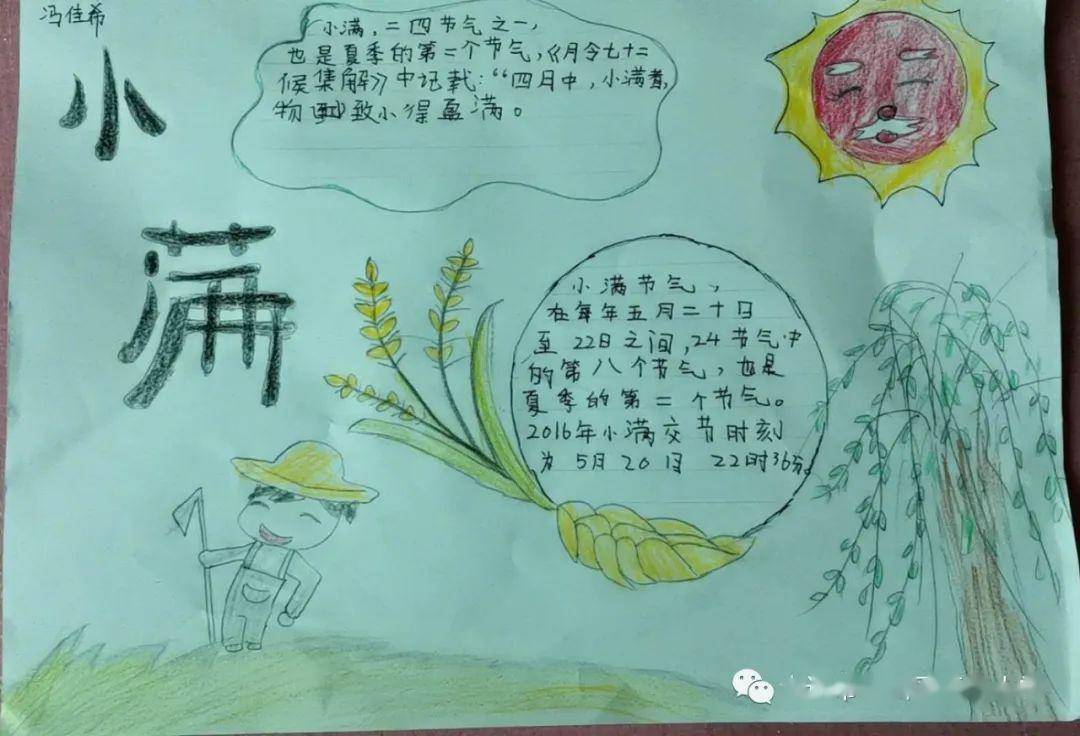 冯佳希
小满
小满,二四节气之一,
也是夏季的第二个节气,《月令七十二
候集解》中记载:“四月中,小满者,
物致小得盈满。
小满节气,
在每年五月二十日
至22日之间,24节气中
的第八个节气,也是
夏季的第二个节气。
2016年小满交节时刻
为5月20日 22时36分。